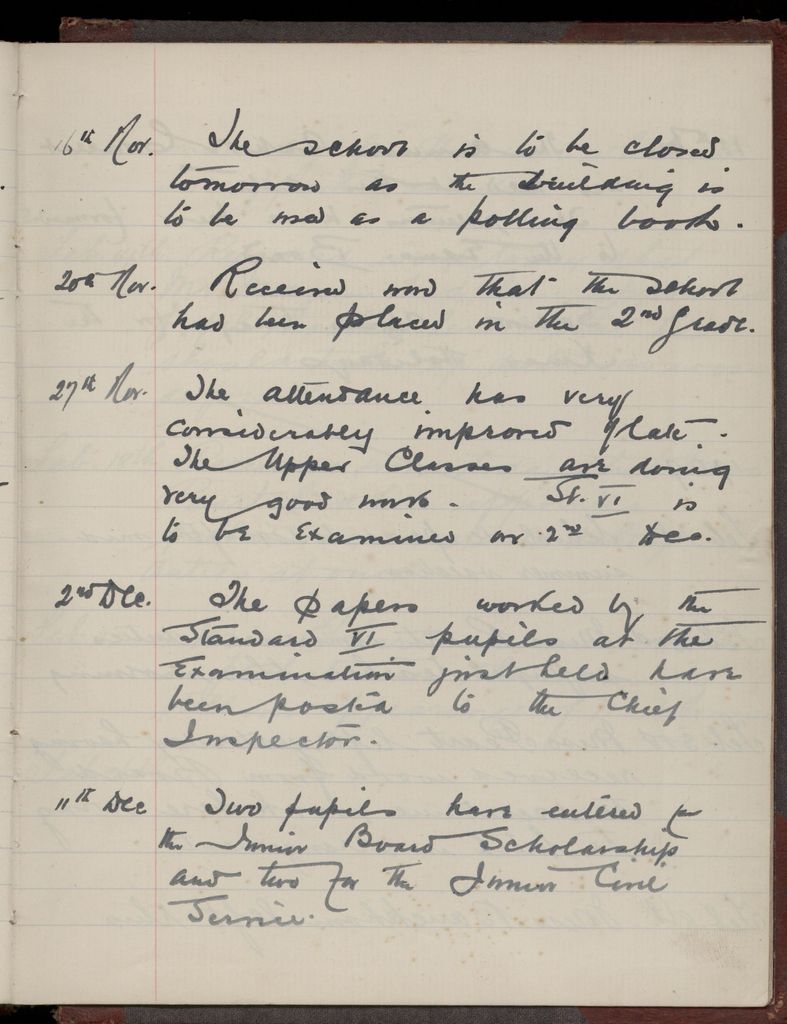 16th Nov. The school is to be closed
tomorrow as the building is
to be used as a polling booth.
20th Nov. Received word that the school
had been placed in the 2nd Grade.
27th Nov. The attendance has very
considerably improved of late.
The Upper Classes are doing
very good work. St. VI is
to be Examined on 2nd Dec.
2nd Dec. The papers worked by the
Standard VI pupils at the
Examination just held have
been posted to the Chief
Inspector.
11th Dec Two pupils have entered for
the Junior Board Scholarship
and two for the Junior Civil
Service.